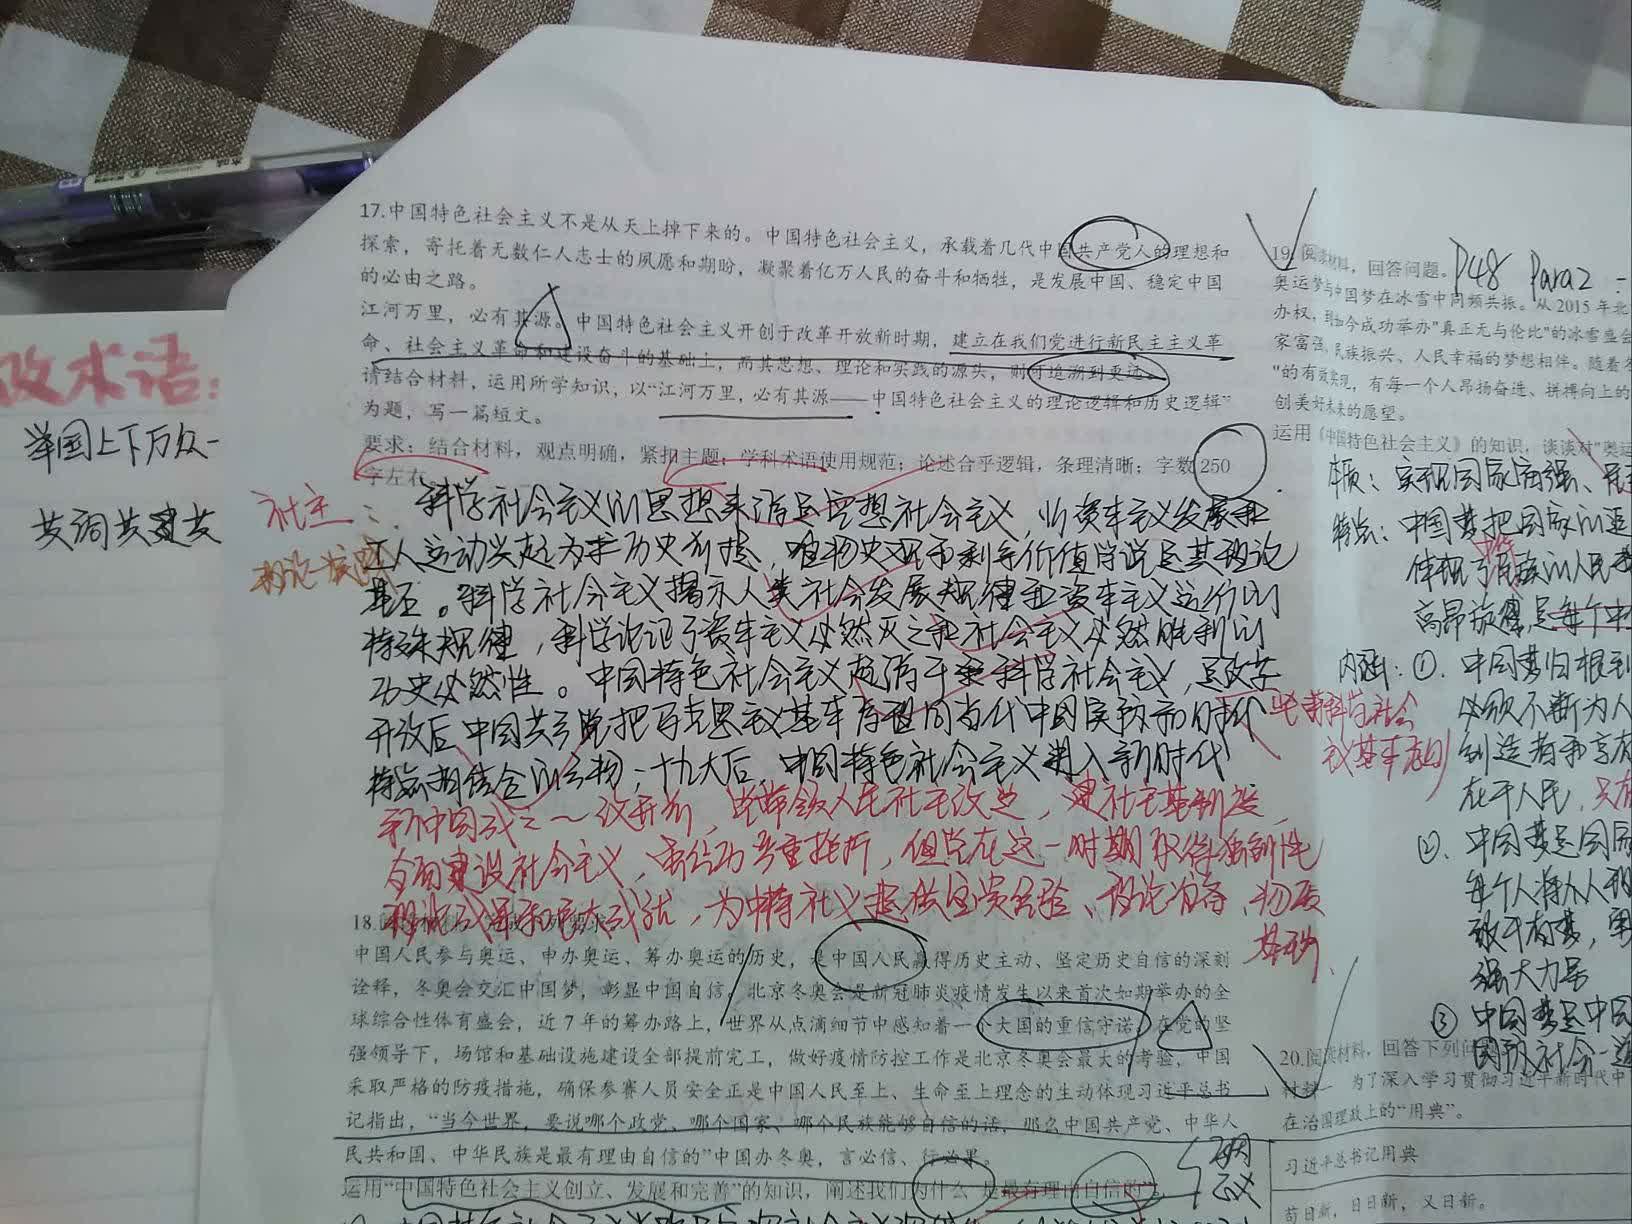 政术语:
举国上下万众一
共词共建共
17.中国特色社会主义不是从天上掉下来的。中国特色社会主义，承载着几代中国共产党人的理想和
探索，寄托着无数仁人志士的夙愿和期盼，凝聚着亿万人民的奋斗和牺牲，是发展中国、稳定中国
的必由之路。
江河万里，必有其源。中国特色社会主义开创于改革开放新时期，建立在我们党进行新民主主义革
命、社会主义革命和建设奋斗的基础上，而其思想、理论和实践的源头，则可追溯到更远。
请结合材料，运用所学知识，以“江河万里，必有其源——中国特色社会主义的理论逻辑和历史逻辑”
为题，写一篇短文。
要求：结合材料，观点明确，紧扣主题；学科术语使用规范；论述合乎逻辑，条理清晰；字数250
字左右。
社主：
科学社会主义的思想来源是空想社会主义，以资本主义发展和
工人运动兴起为求历史前提，唯物史观和剩余价值学说是其理论
基石。科学社会主义揭示人类社会发展规律和资本主义运行的
特殊规律，科学论证了资本主义必然灭亡和社会主义必然胜利的
历史必然性。中国特色社会主义起源于科学社会主义，是改革
开放后中国共产党把马克思主义基本原理同当代中国实际和时代
特点相结合的产物；十九大后，中国特色社会主义进入新时代
坚持科学社会
主义基本原则
新中国成立～改开前，党带领人民社主改造，建社主基制度，
全面建设社会主义，虽经历严重挫折，但党在这一时期取得独创性
理论成果和巨大成就，为中特社义提供宝贵经验、理论准备、物质
基础。
18.
中国人民参与奥运、申办奥运、筹办奥运的历史，是中国人民赢得历史主动、坚定历史自信的深刻
诠释，冬奥会交汇中国梦，彰显中国自信。北京冬奥会是新冠肺炎疫情发生以来首次如期举办的全
球综合性体育盛会，近7年的筹办路上，世界从点滴细节中感知着一个大国的重信守诺。在党的坚
强领导下，场馆和基础设施建设全部提前完工，做好疫情防控工作是北京冬奥会最大的考验，中国
采取严格的防疫措施，确保参赛人员安全正是中国人民至上、生命至上理念的生动体现习近平总书
记指出，“当今世界，要说哪个政党、哪个国家、哪个民族能够自信的话，那么中国共产党、中华人
民共和国、中华民族是最有理由自信的”中国办冬奥，言必信、行必果。
运用“中国特色社会主义创立、发展和完善”的知识，阐述我们为什么“是最有理由自信的”。
19.阅读材料，回答问题。
P48 Para2
奥运梦与中国梦在冰雪中同频共振。从2015年北
办权，到如今成功举办“真正无与伦比”的冰雪盛会
家富强、民族振兴、人民幸福的梦想相伴。随着冬
“的有效实现，有每一个人昂扬奋进、拼搏向上的
创美好未来的愿望。
运用《中国特色社会主义》的知识，谈谈对“奥运
本质：实现国家富强、民
特点：中国梦把国家的追
体现了中华民族的人民
高昂旋律，是每个中
内涵：①. 中国梦归根到
必须不断为人
创造者和享有
在于人民，只有
②. 中国梦是国家
每个人将人人
敢于有梦，勇
强大力量
③ 中国梦是中国
国和社会一道
20.阅读材料，回答下列问
材料一 为了深入学习贯彻习近平新时代中
在治国理政上的“用典”。
习近平总书记用典
苟日新，日日新，又日新。